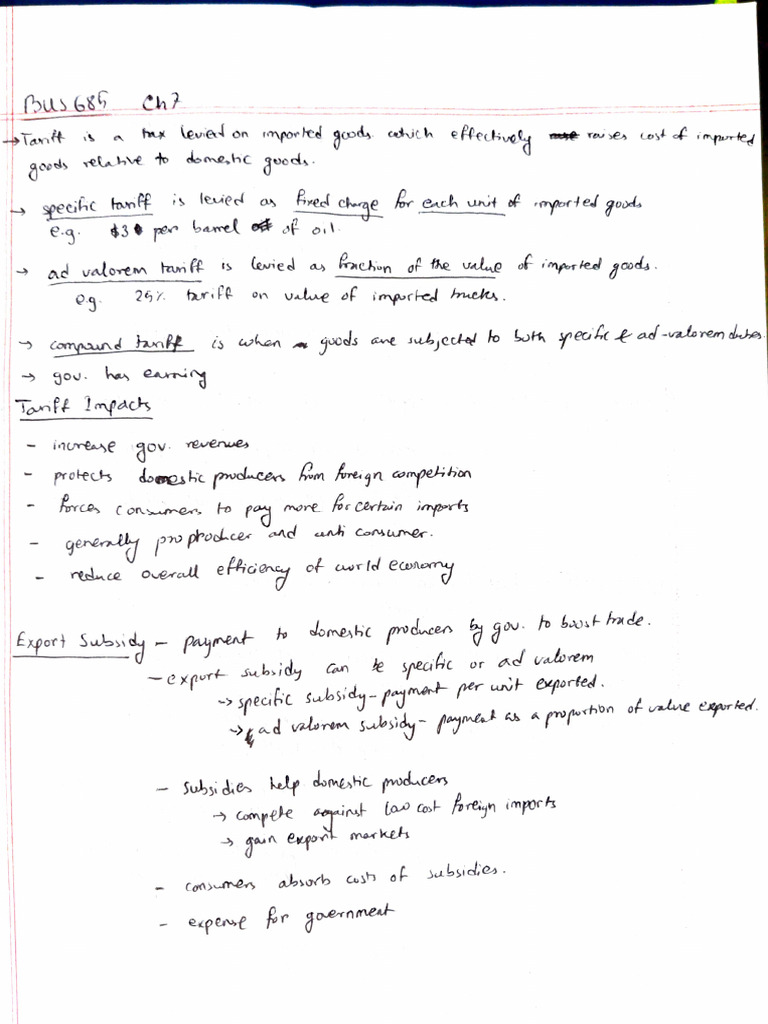 BUS 685 Ch 7
→ Tariff is a tax levied on imported goods which effectively raises cost of imported
goods relative to domestic goods.
→ specific tariff is levied as fixed charge for each unit of imported goods
e.g. $3 per barrel of oil.
→ ad valorem tariff is levied as fraction of the value of imported goods.
e.g. 25% tariff on value of imported trucks.
→ compound tariff is when goods are subjected to both specific & ad-valorem duties.
→ gov. has earning
Tariff Impacts
- increase gov. revenues
- protects domestic producers from foreign competition
- forces consumers to pay more for certain imports
- generally pro producer and anti consumer.
- reduce overall efficiency of world economy
Export Subsidy - payment to domestic producers by gov. to boost trade.
- export subsidy can be specific or ad valorem
→ specific subsidy - payment per unit exported.
→ ad valorem subsidy - payment as a proportion of value exported.
- subsidies help domestic producers
→ compete against low cost foreign imports
→ gain export markets
- consumers absorb costs of subsidies.
- expense for government